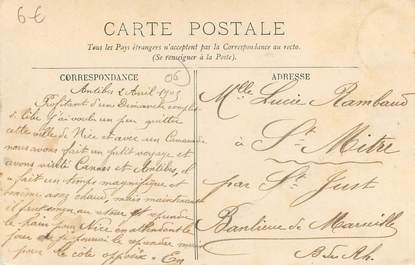 6€
CARTE POSTALE
Tous les Pays étrangers n'acceptent pas la Correspondance au recto.
(Se renseigner à la Poste).
CORRESPONDANCE
06
ADRESSE
Antibes 2 Avril 1905
Profitant d'un Dimanche complet
de libre j'ai voulu un peu quitter
cette ville de Nice et avec un Camarade
nous avons fait un petit voyage et
avons visité Cannes et Antibes, il
a fait un temps magnifique et
assez chaud, mais maintenant
il faut au reprendre
le train pour Nice en attendant le
jour de pouvoir le reprendre
pour le côté opposé. En
Melle Lucie Rambaud
à St-Mitre
par St Just
Banlieue de Marseille
B du Rh.